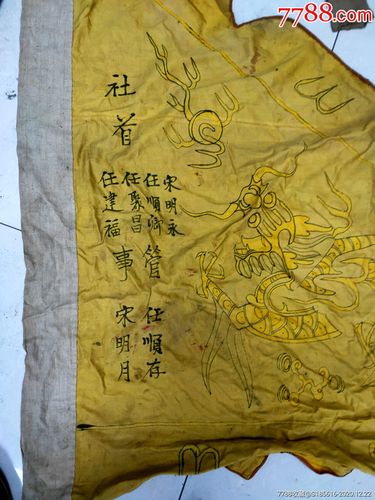 7788.com
社首
宋明永
任順卿
任聚昌
任建福
管事
任順存
宋明月
7788收藏@S185016-2020.12.22